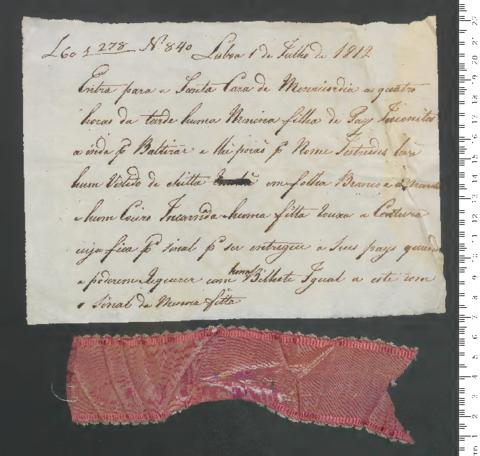 L60 1 278 N. 840 Lxboa 1 de Julho de 1812
Entra para a Santa Caza de Mizericordia as quatro
horas da tarde huma Menina filha de Pays Incognitos
a inda pr Baltizar e lhe porás pr Nome
hum Vestido de chitta em folha Branco e
e hum Coeiro Incarnado e huma fitta Rouxa a Cintura
cuja fica pr sinal pr ser entregue a seus pays quando
a poderem Requerer com hum Bilhete Igual a este com
o Sinal da Mesma fitta